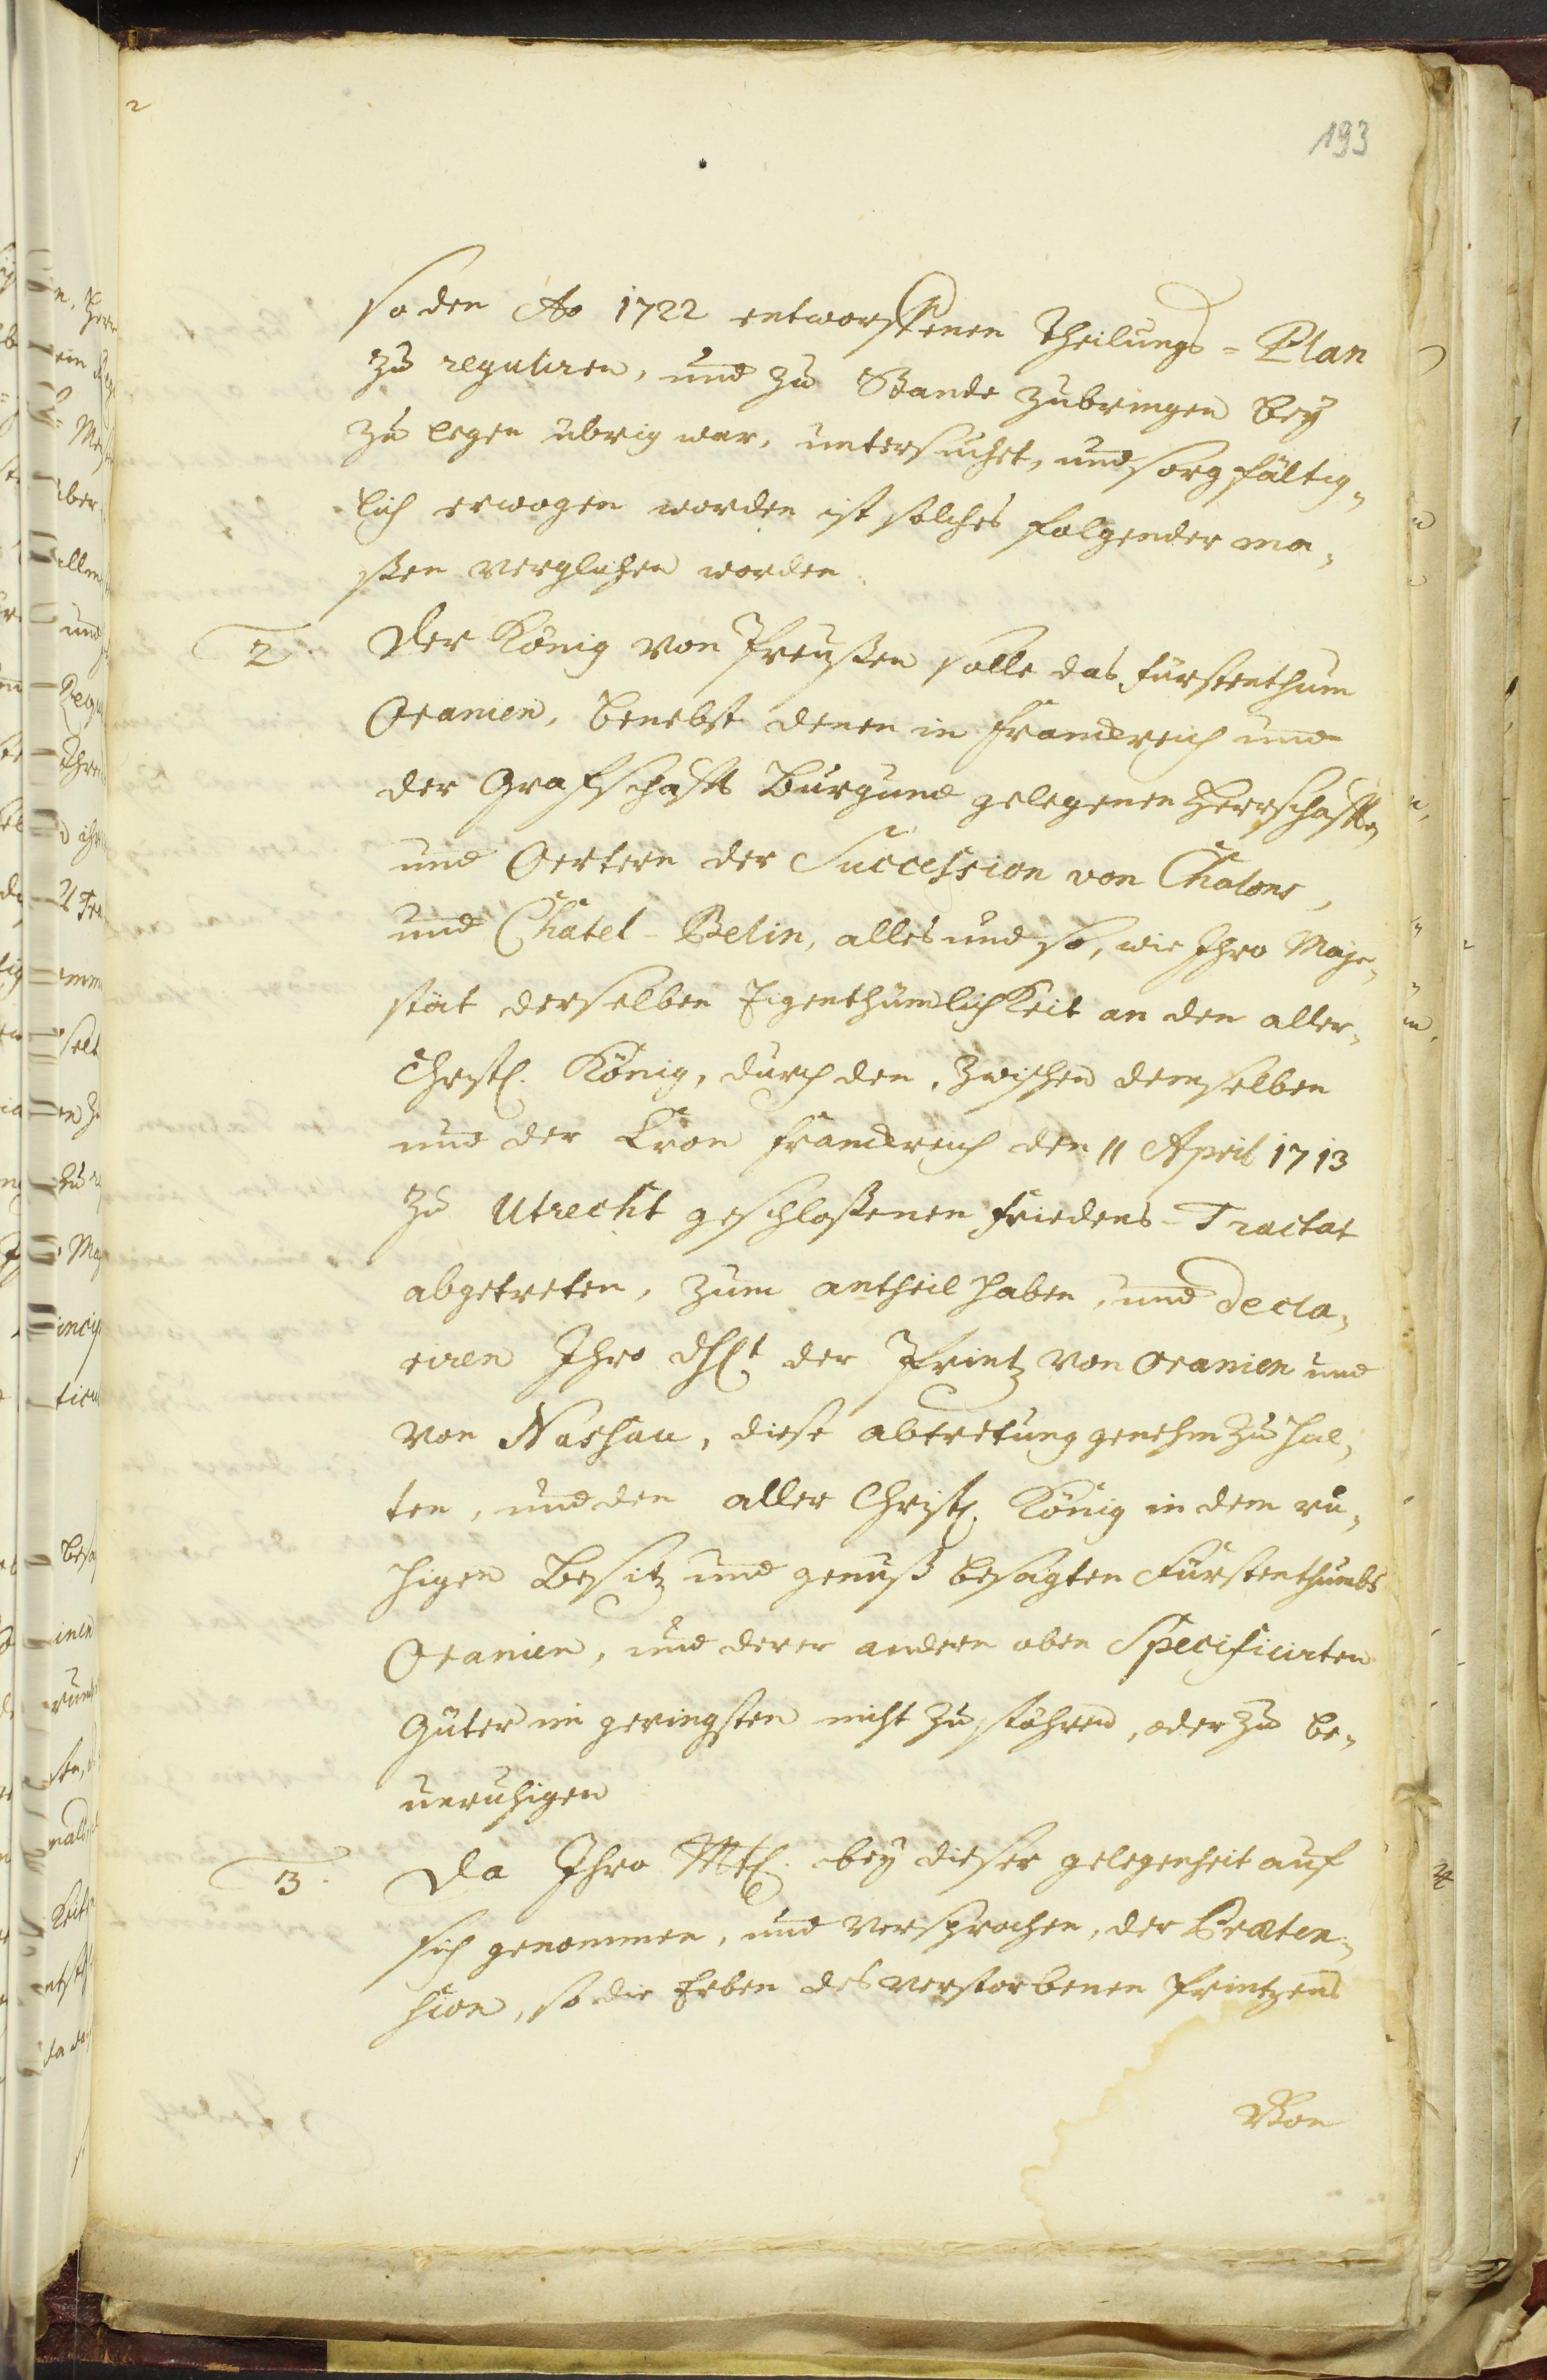 193
so den Ao 1722 entworffenen Theilungs-Plan
zu reguliren, und zu Stande zubringen bey
zu legen übrig war, untersuchet, und sorgfältig-
lich erwogen worden ist solches folgender ma-
ßen verglichen worden.
2. Der König von Preußen solle das Fürstenthum
Oranien, benebst denen in Franckreich und
der Grafschafft Burgund gelegenen Herrschafften
und Oertern der Succession von Chalons,
und Chatel-Belin, alles und so, wie Ihro Maje-
stät derselben Eigenthümlichkeit an den aller-
Christl. König, durch den, zwischen demselben
und der Cron Franckreich den 11 April 1713
zu Utrecht geschloßenen Friedens-Tractat
abgetreten, zum antheil haben, und decla-
riren Ihro Dhlt der Printz von Oranien und
von Nassau, diese abtretung genehm zu hal-
ten, und den aller Christl. König in dem ru-
higen Besitz und genuß besagten Fürstenthumbs
Oranien, und derer andern oben Specificirten
Güter im geringsten nicht zu stöhren, oder zu be-
unruhigen
3. Da Ihro Mtl. bey dieser gelegenheit auf
sich genommen, und versprochen, der Præten-
sion, so die Erben des verstorbenen Printzens
Von